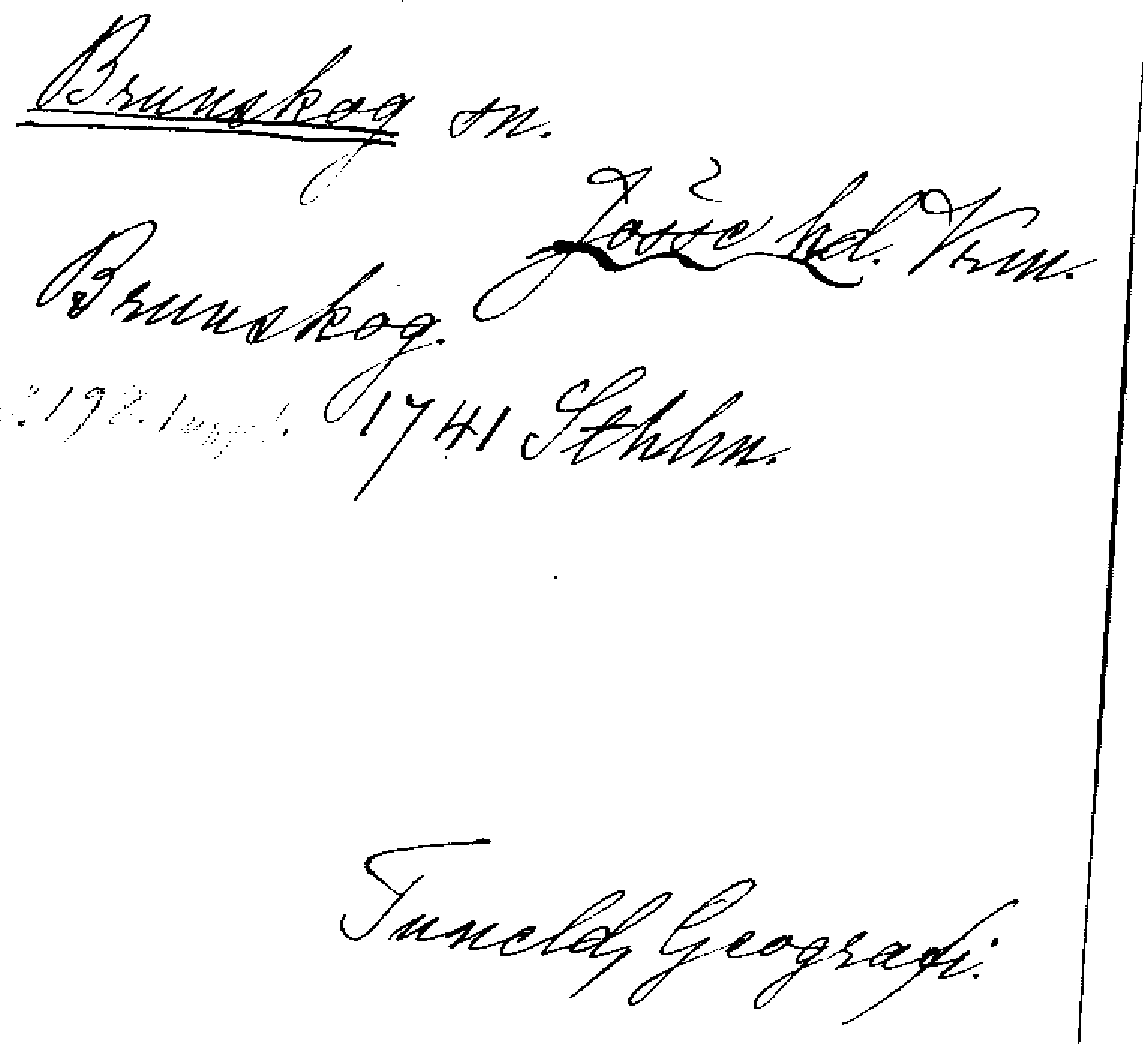 Brunskog sn.
Jösse hd. Vrm.
Brunskog.
s. 192. 1741 Sthlm.
Tunelds Geografi.